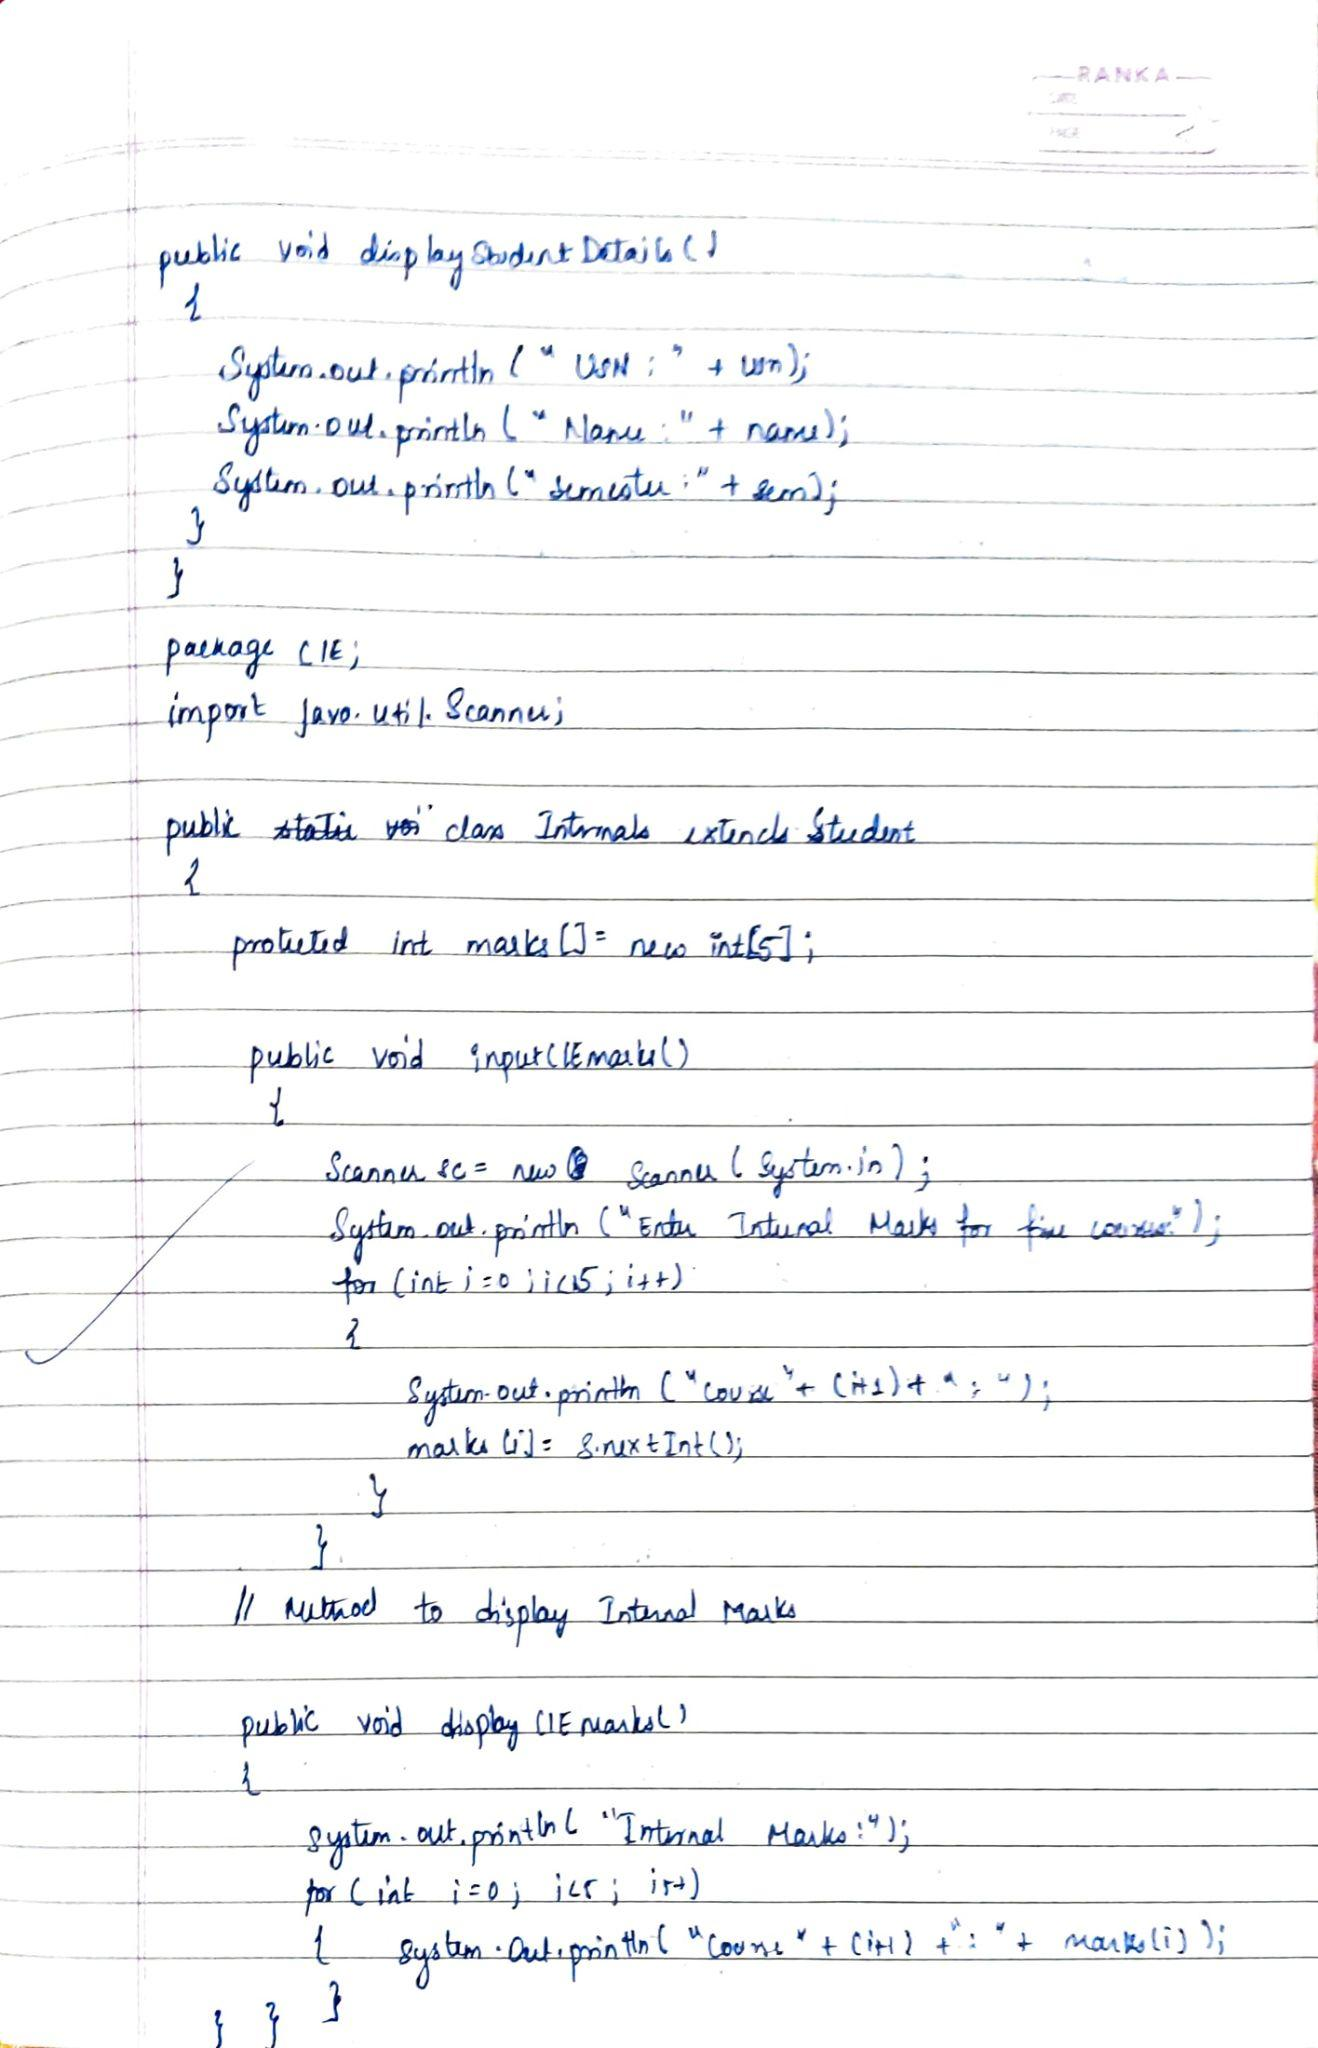 RANKA
DATE
PAGE
public void displayStudentDetails()
{
System.out.println (" USN : " + usn);
System.out.println (" Name : " + name);
System.out.println (" Semester : " + sem);
}
}
package CIE;
import java.util.Scanner;
public static voi class Internals extends Student
{
protected int marks[] = new int[5];
public void inputCIEmarks()
{
Scanner sc = new Scanner (System.in);
System.out.println ("Enter Internal Marks for five courses:");
for (int i=0; i<5; i++)
{
System.out.println ("Course" + (i+1) + " : ");
marks[i] = s.nextInt();
}
}
// Method to display Internal Marks
public void display CIEmarks()
{
System.out.println( "Internal Marks:");
for (int i=0; i<5; i++)
{ System.out.println( "Course" + (i+1) + " : " + marks[i]);
} } }